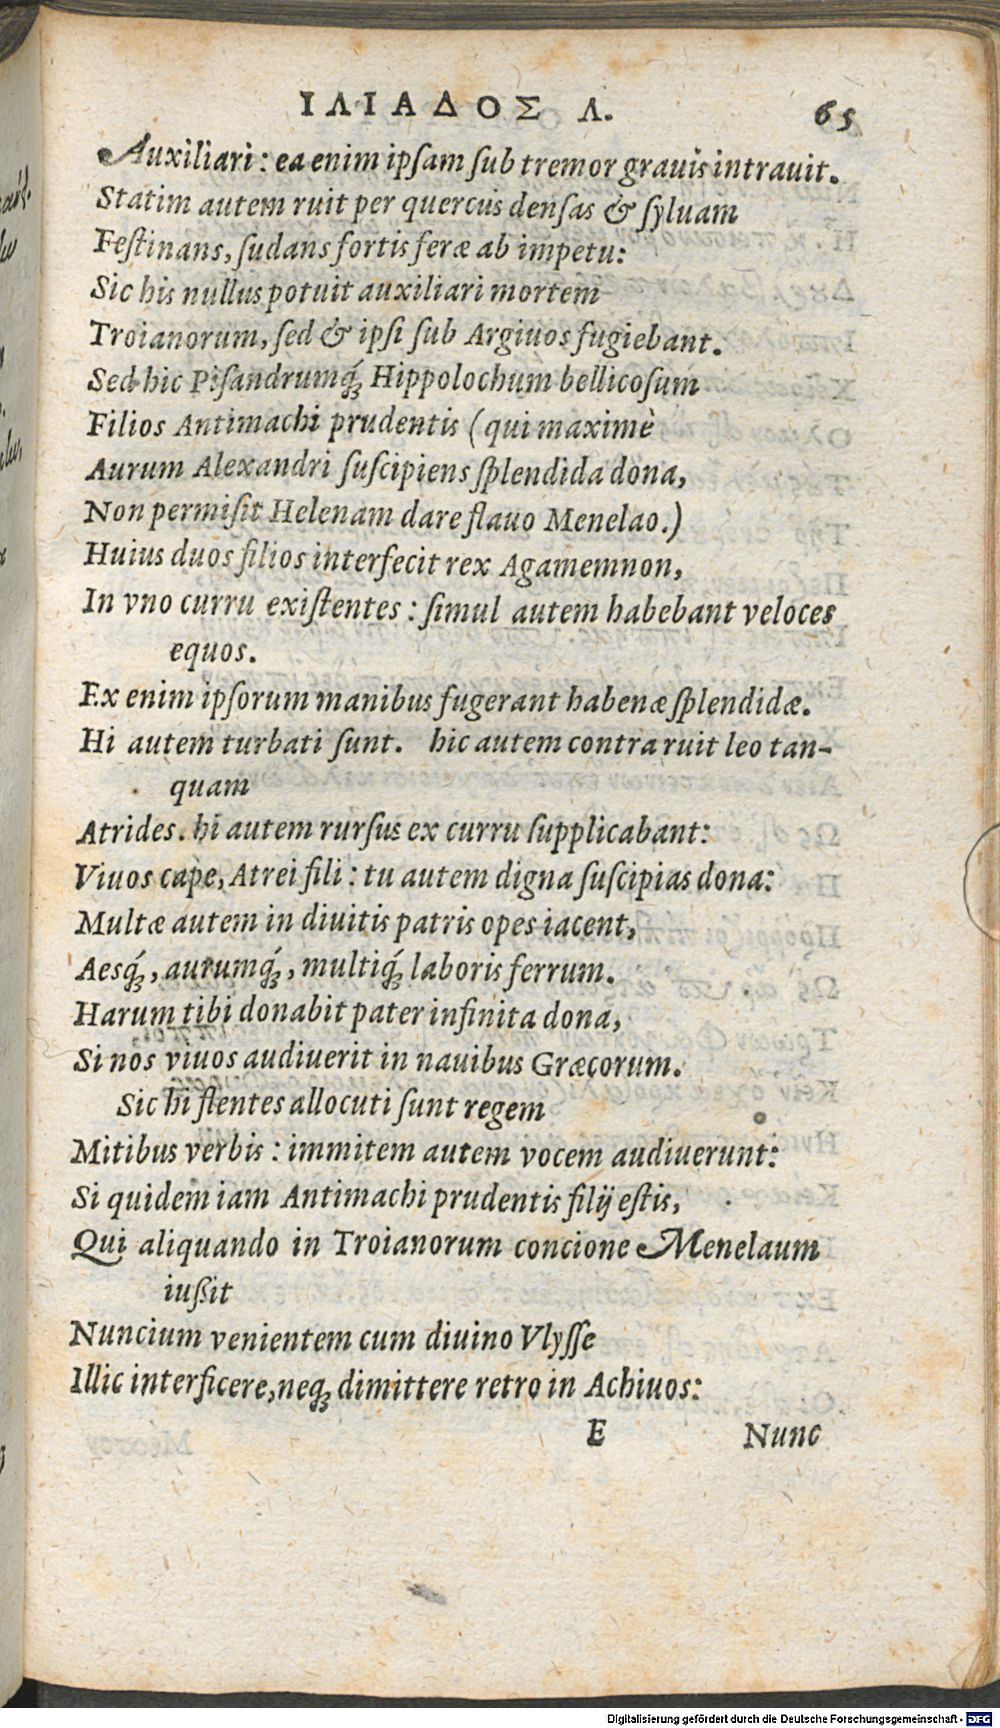 ΙΛΙΑΔΟΣ Λ. 65
Auxiliari: ea enim ipſam ſub tremor grauis intrauit.
Statim autem ruit per quercus denſas & ſyluam
Feſtinans, ſudans fortis feræ ab impetu:
Sic his nullus potuit auxiliari mortem
Troianorum, ſed & ipſi ſub Argiuos fugiebant.
Sed hic Piſandrumq́ꝫ Hippolochum bellicoſum
Filios Antimachi prudentis (qui maximè
Aurum Alexandri ſuſcipiens ſplendida dona,
Non permiſit Helenam dare flauo Menelao.)
Huius duos filios interfecit rex Agamemnon,
In vno curru exiſtentes: ſimul autem habebant veloces
equos.
Ex enim ipſorum manibus fugerant habenæ ſplendidæ.
Hi autem turbati ſunt. hic autem contra ruit leo tan-
quam
Atrides. hi autem rurſus ex curru ſupplicabant:
Viuos cape, Atrei fili: tu autem digna ſuſcipias dona:
Multæ autem in diuitis patris opes iacent,
Aesq́ꝫ, aurumq́ꝫ, multiq́ꝫ laboris ferrum.
Harum tibi donabit pater infinita dona,
Si nos viuos audiuerit in nauibus Græcorum.
Sic hi flentes allocuti ſunt regem
Mitibus verbis: immitem autem vocem audiuerunt:
Si quidem iam Antimachi prudentis filij eſtis,
Qui aliquando in Troianorum concione Menelaum
iußit
Nuncium venientem cum diuino Vlyſſe
Illic interficere, neqꝫ dimittere retro in Achiuos:
E Nunc
Digitalisierung gefördert durch die Deutsche Forschungsgemeinschaft - DFG